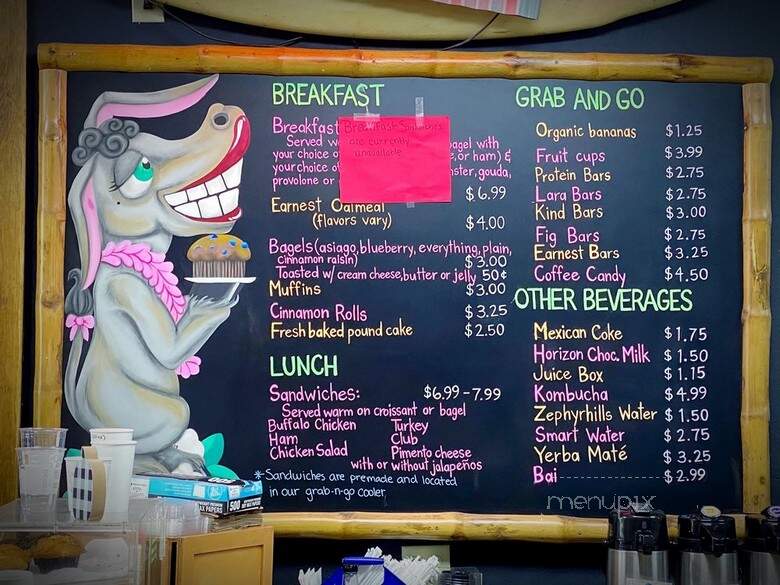 BREAKFAST
Breakfast
Breakfast Sandwiches
are currently
unavailable
Served bagel with
your choice o or ham) &
your choice of gouda,
provolone or $6.99
Earnest Oatmeal
(flavors vary) $4.00
Bagels (asiago, blueberry, everything, plain,
cinnamon raisin) $3.00
Toasted w/ cream cheese, butter or jelly 50¢
Muffins $3.00
Cinnamon Rolls $3.25
Fresh baked pound cake $2.50
LUNCH
Sandwiches: $6.99-7.99
Served warm on croissant or bagel
Buffalo Chicken Turkey
Ham Club
Chicken Salad Pimento cheese
with or without jalapeños
*Sandwiches are premade and located
in our grab-n-go cooler
GRAB AND GO
Organic bananas $1.25
Fruit cups $3.99
Protein Bars $2.75
Lara Bars $2.75
Kind Bars $3.00
Fig Bars $2.75
Earnest Bars $3.25
Coffee Candy $4.50
OTHER BEVERAGES
Mexican Coke $1.75
Horizon Choc. Milk $1.50
Juice Box $1.15
Kombucha $4.99
Zephyrhills Water $1.50
Smart Water $2.75
Yerba Maté $3.25
Bai $2.99
menupix
500